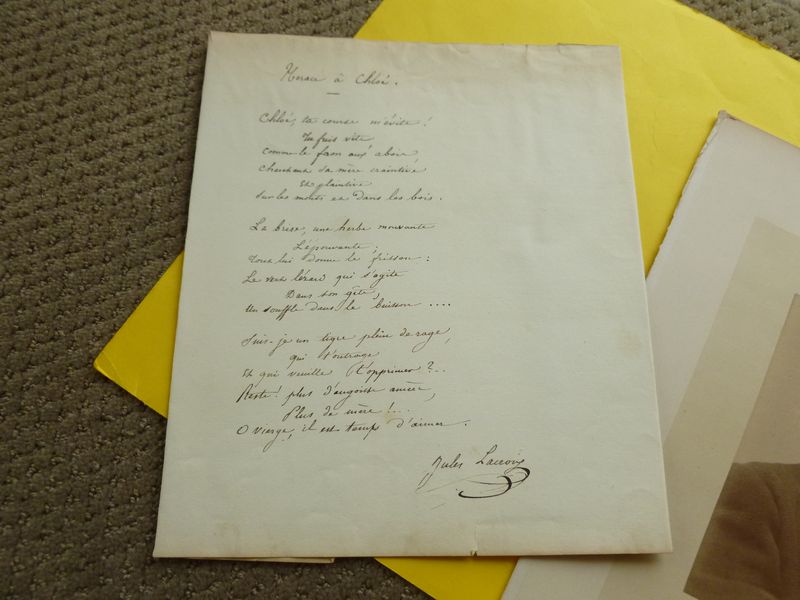 Horace à Chloé.
Chloé, ta course m'évite !
Tu fuis vite
comme le faon aux abois,
Cherchant sa mère craintive
Et plaintive
Sur les monts et dans les bois.
La brise, une herbe mouvante
L'épouvante ;
Tout lui donne le frisson :
Le vert lézard qui s'agite
Dans son gîte,
Un souffle dans le buisson ....
Suis-je un tigre plein de rage,
qui t'outrage
Et qui veuille t'opprimer ?..
Reste ! plus d'angoisse amère,
Plus de mère !...
O vierge, il est temps d'aimer.
Jules Lacroix